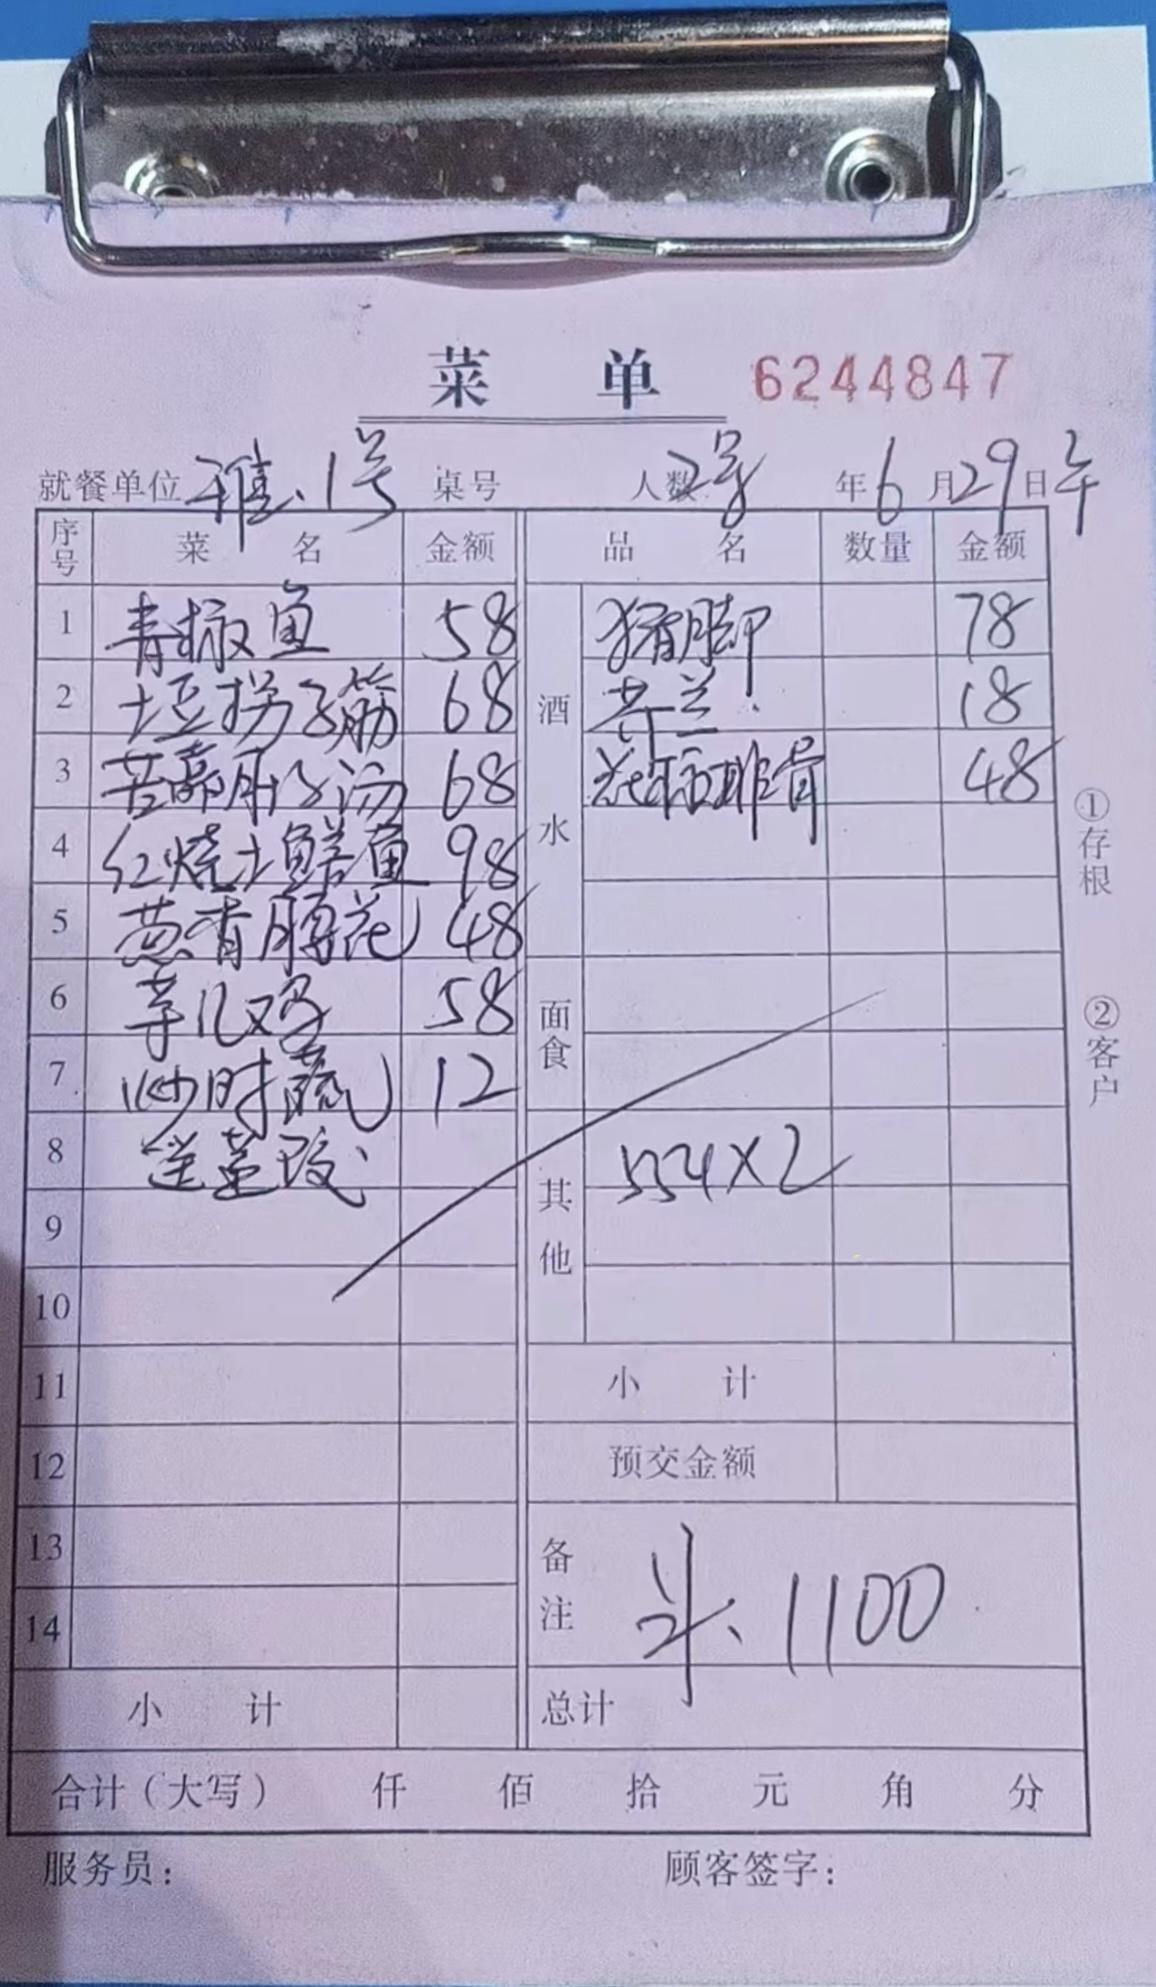 菜 单 6244847
就餐单位 雅、1号 桌号 人数 2号 年 6 月 29 日 午
序号 菜 名 金额 品 名 数量 金额
1 青椒鱼 58 酒水 猪脚 78
2 土豆拐子筋 68 芥兰 18
3 苦藠肚子汤 68 花椒排骨 48
4 红烧土鳝鱼 98
5 葱香腰花 48
6 芋儿鸡 58 面食
7 炒时蔬 12
8 其他 554X2
9
10
11 小 计
12 预交金额
13 备注 斗、1100
14
小 计 总计
合计（大写） 仟 佰 拾 元 角 分
服务员： 顾客签字：
①存根
②客户